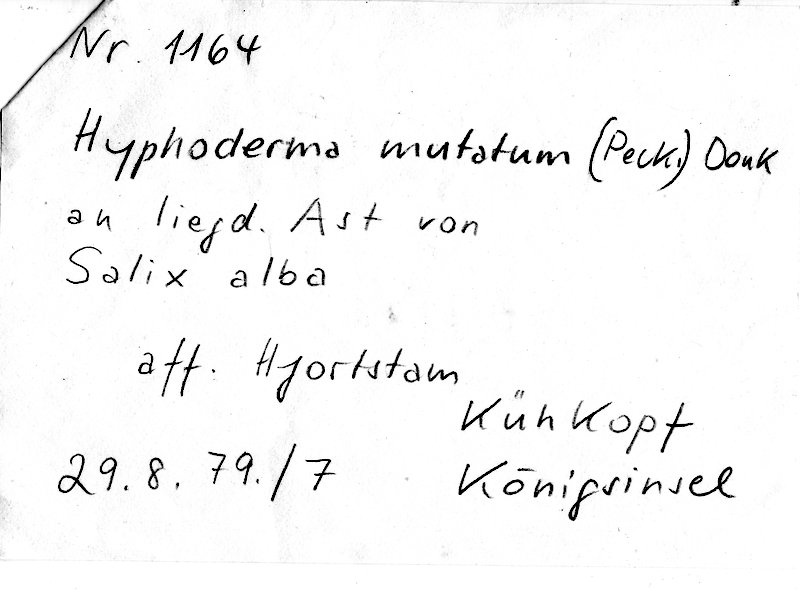 Nr. 1164
Hyphoderma mutatum (Peck.) Donk
an liegd. Ast von
Salix alba
aff. Hjortstam
Kühkopf
29.8.79./7 Königsinsel